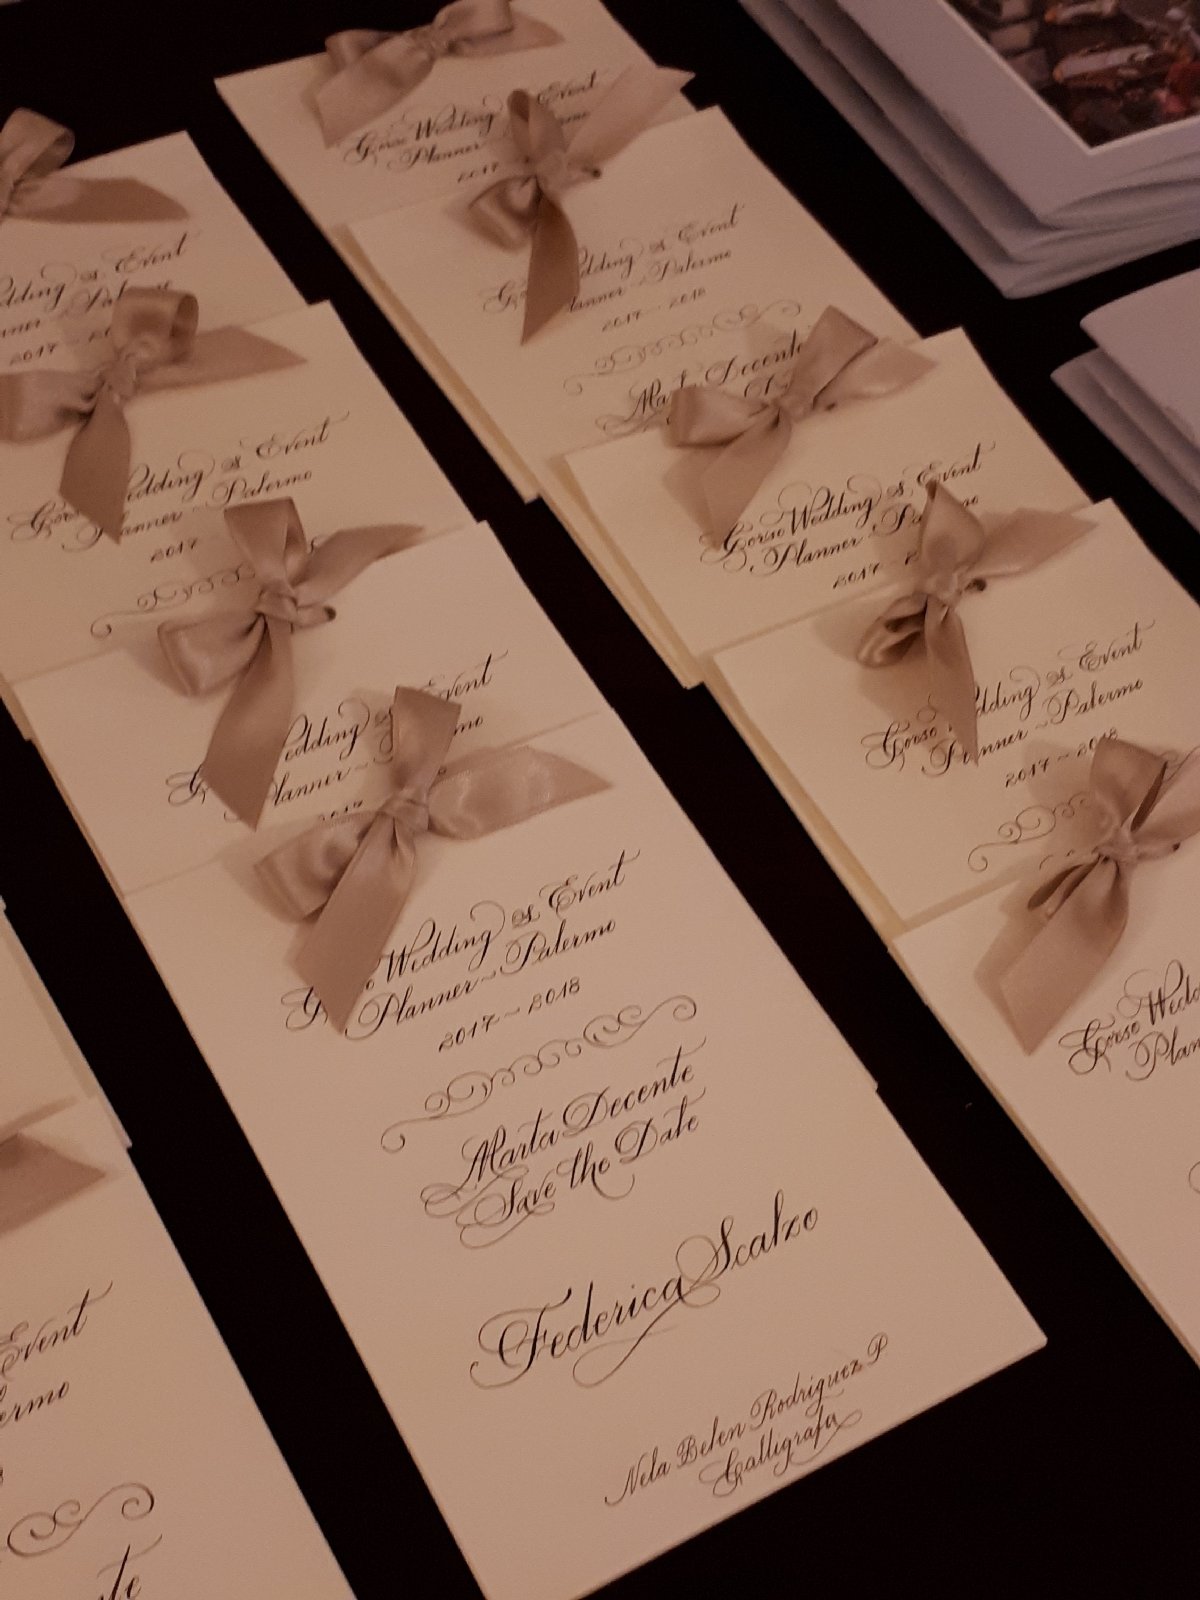 Corso Wedding & Event
Planner
2017
Wedding & Event
Planner ~ Palermo
2017 ~ 2018
Marta Decente
Corso Wedding & Event
Planner ~
2017
Wedding & Event
Planner ~ Palermo
2017 ~ 2018
Corso Wedd
Plan
Event
2017 ~
Corso Wedding & Event
Planner ~ Palermo
2017
Wedding & Event
Planner ~
Corso Wedding & Event
Planner ~ Palermo
2017 ~ 2018
Marta Decente
Save the Date
Federica Scalzo
Nela Belen Rodriguez P
Calligrafa
Event
ermo
te